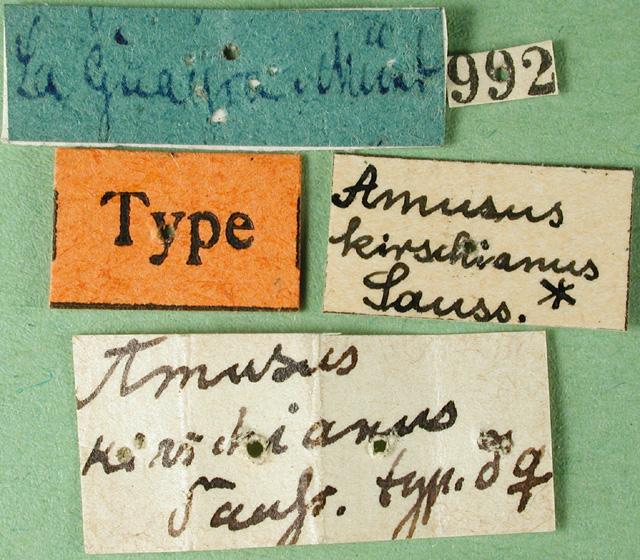 La Guayra
992
Type
Amusus
kirschianus
Sauss. *
Amusus
kirschianus
Sauss. typ. ♂ ♀